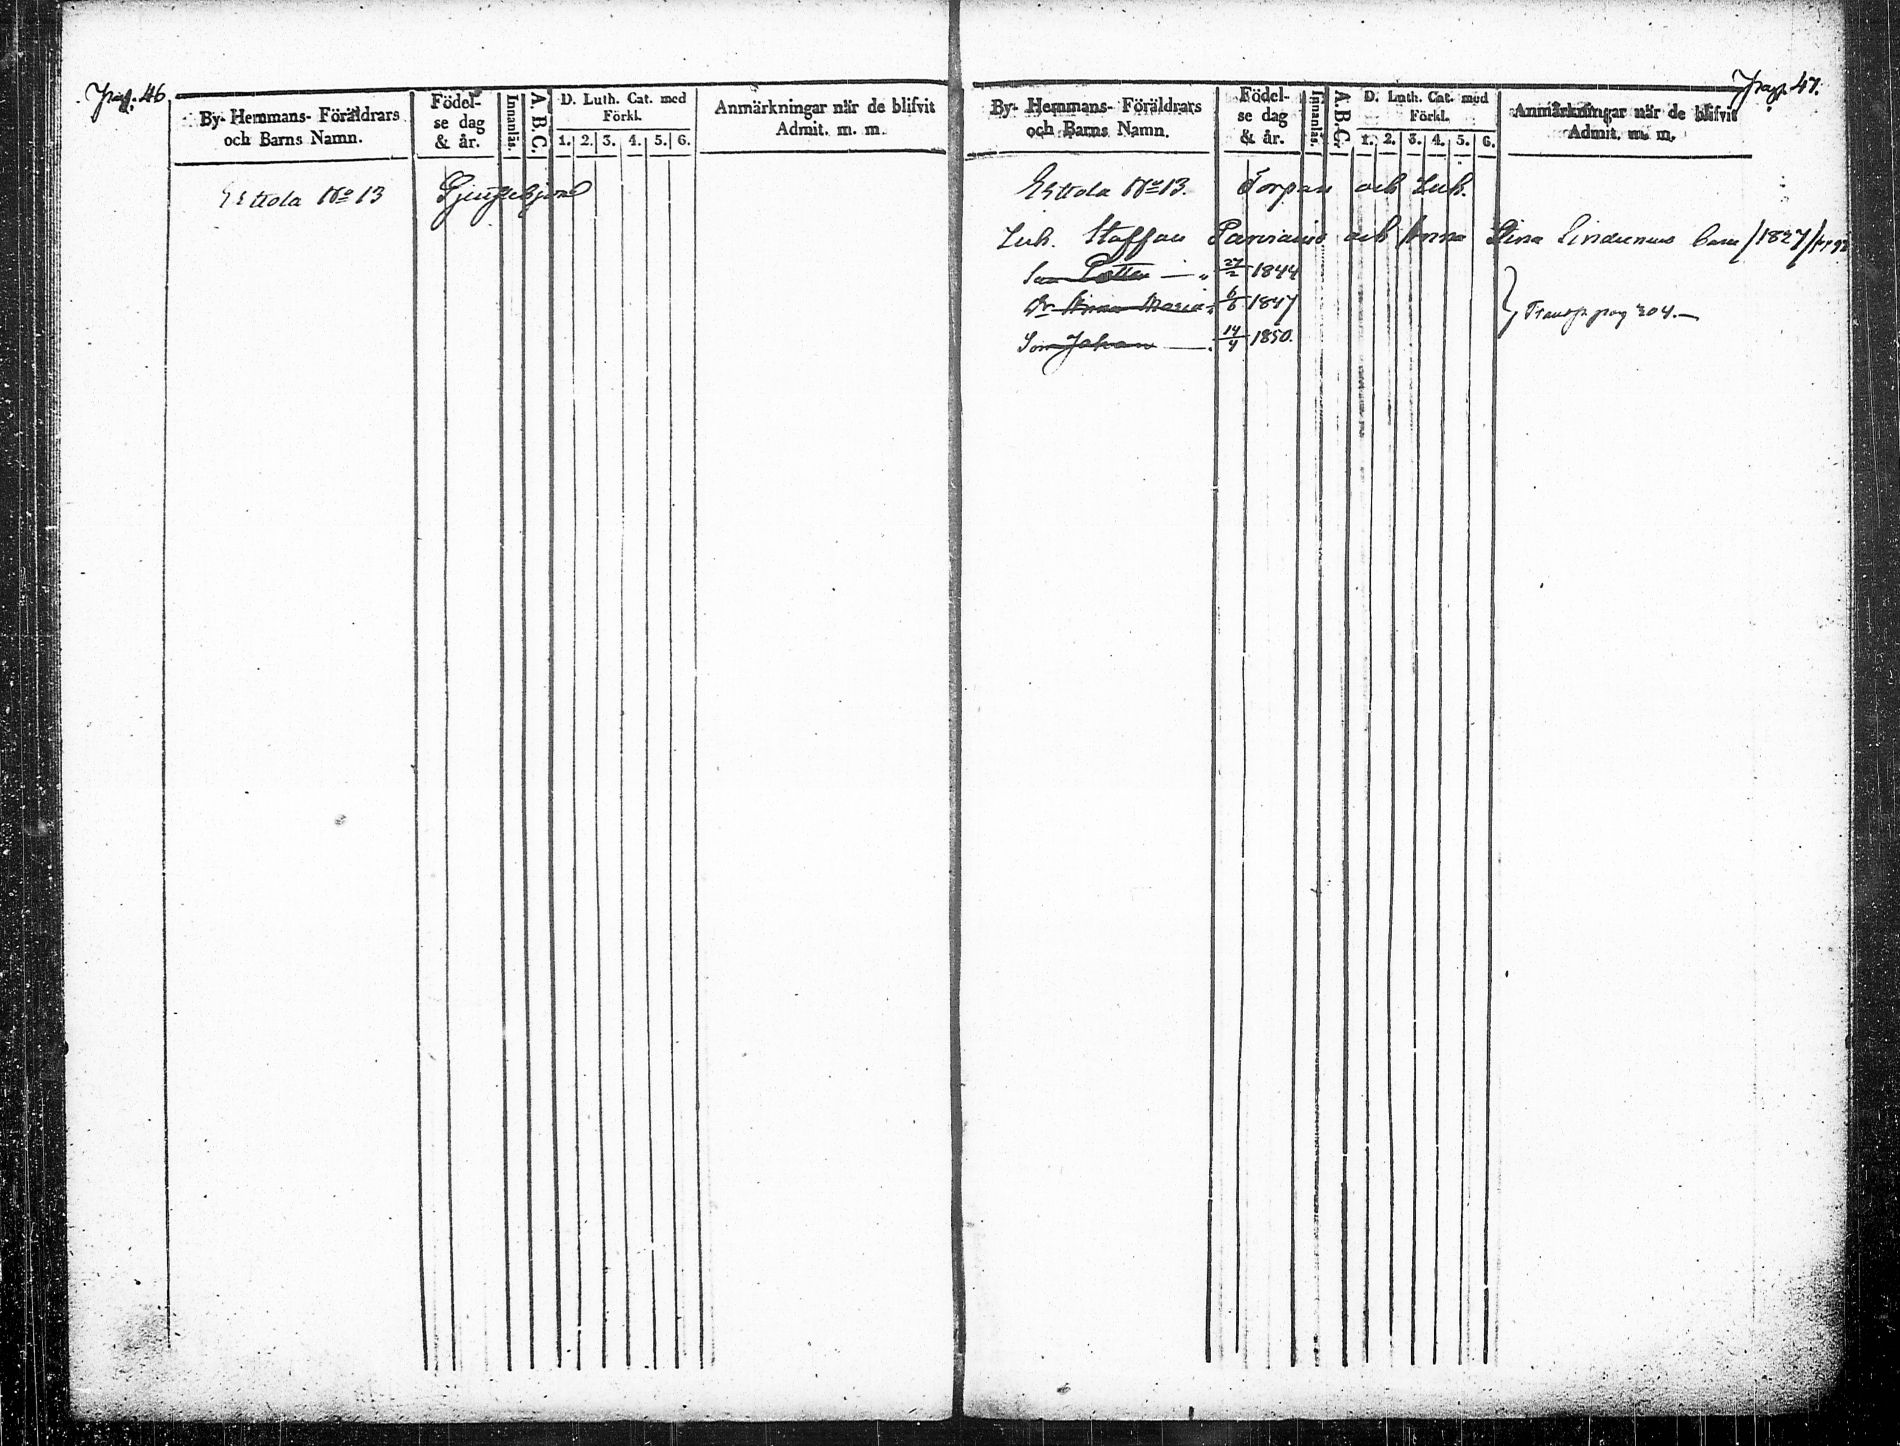 Pag. 46
By- Hemmans- Föräldrars och Barns Namn.
Födelse dag & år.
Innanläs.
A.B.C.
D. Luth. Cat. med Förkl.
1. 2. 3. 4. 5. 6.
Anmärkningar när de blifvit Admit. m. m.
Esttola No 13
Pag. 47.
By- Hemmans- Föräldrars och Barns Namn.
Födelse dag & år.
Innanläs.
A.B.C.
D. Luth. Cat. med Förkl.
1. 2. 3. 4. 5. 6.
Anmärkningar när de blifvit Admit. m. m.
Esttola No 13. Torpare och Inh.
Inh. Staffan och Anna Stina barn /1827/
Son Petter 27/2 1844
Dr Anna Maria 6/6 1847
Son Johan 14/4 1850.
Transp. pag 304.